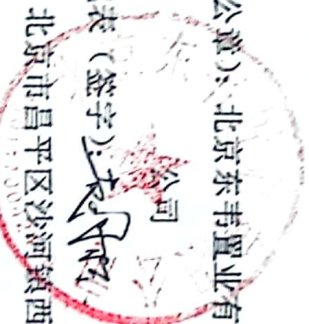 公章）：北京东丰置业有
公司
表（签字）：
北京市昌平区沙河镇西